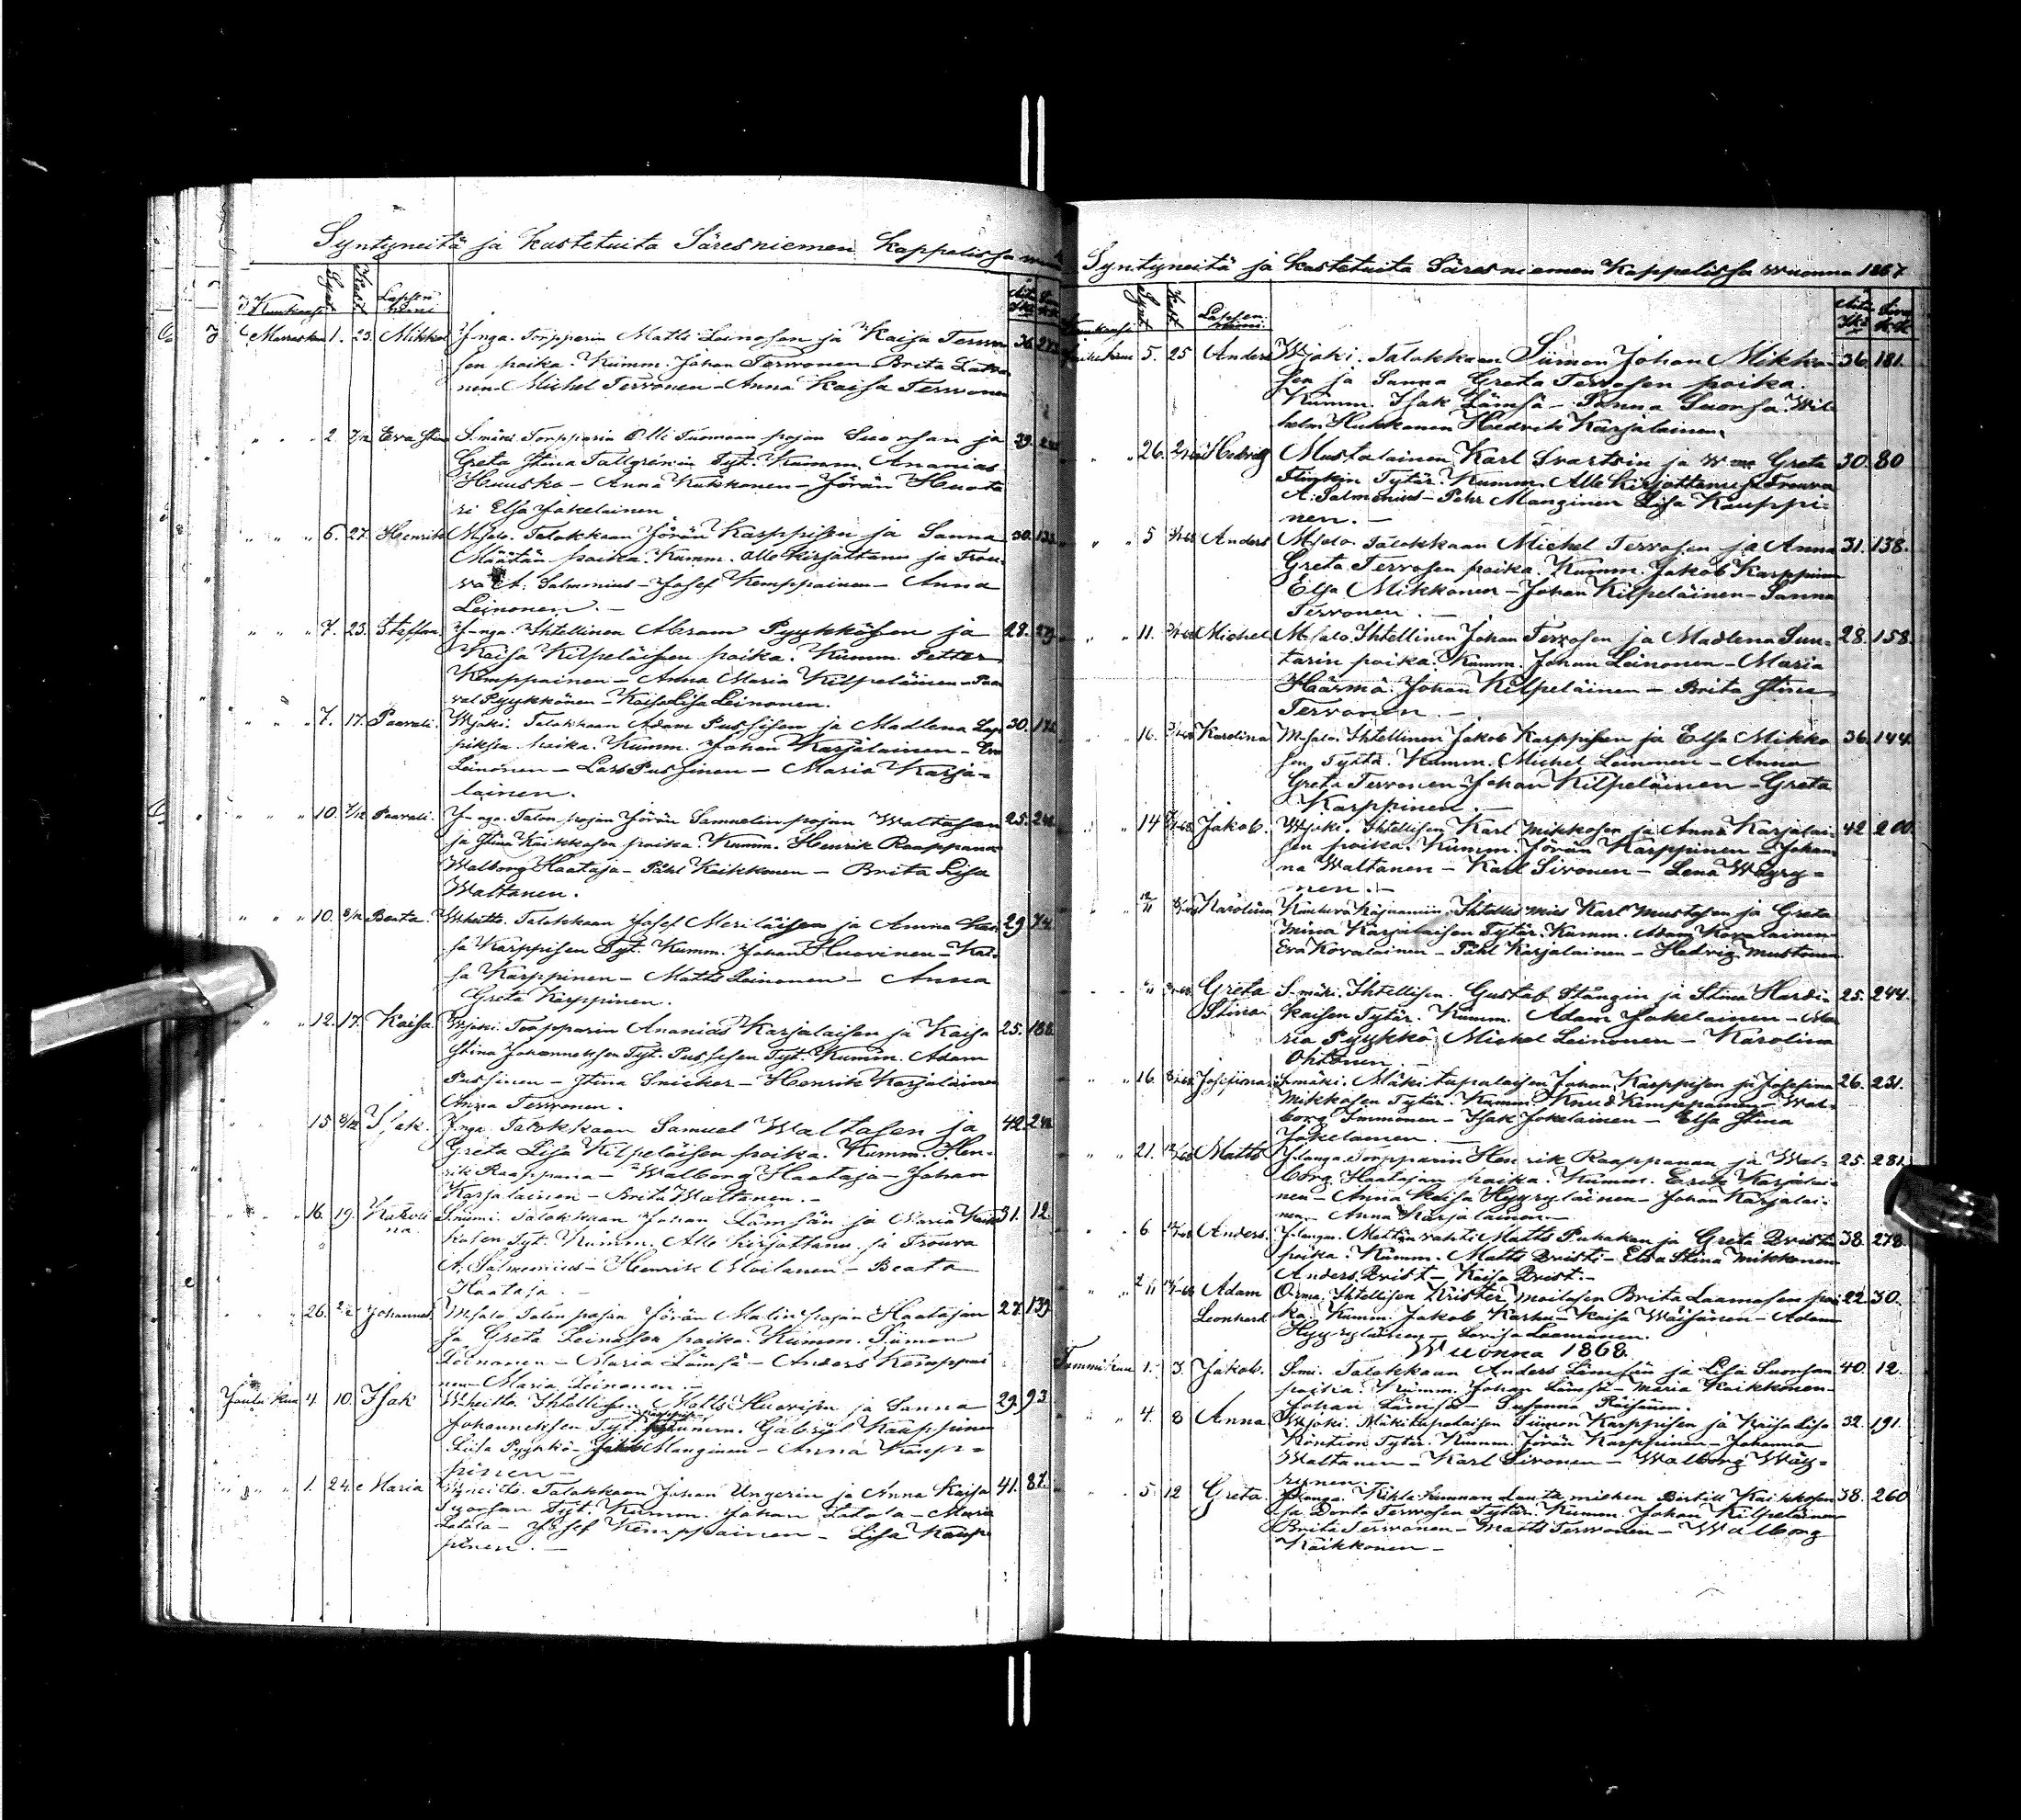 Syntyneitä ja kastetuita Säresniemen Kappelissa
Kuukausi Synt Kast Lapsen nimi Äitin Ikä
Marraskuu 1. 23. Mikkel Y-nga. Torpparin Matts Leinosen ja Kaisa Terwo 36. 273
sen poika. Kumm. Johan Terwonen Brita Lata
nen Michel Terwonen Anna Kaisa Terwonen
" " 2. 7/12 Eva Stina S.mäki Torpparin Olli Tuomaan pojan Suorsan ja 39.
Greta Stina Tallgrénin Tyt. Kumm. Ananias
Huusko - Anna Kukkonen - Jöran Huota
ri Elsa Jakelainen
" " 6. 27. Henrik M.salo. Talokkaan Jöran Karppisen ja Sanna 30. 133
Määtän poika. Kumm. Alle kirjottanu ja Frou-
va A. Salmenius - Josef Kemppainen - Anna
Leinonen. -
" " 7. 23. Staffan. Y-nga. Ihtellinen Abram Pyykkösen ja 28. 279.
Kaisa Kilpeläisen poika. Kumm. Petter
Kemppainen - Anna Maria Kilpeläinen - Paa
val Pyykkönen - Kaisa Lisa Leinonen.
" " 7. 17. Paavali. Wjoki. Talokkaan Adam Pussisen ja Madlena Lap 30. 175
piksia poika. Kumm. Johan Karjalainen - Eva
Leinonen - Lars Pussinen - Maria Karja-
lainen.
" " 10. 7/12 Paavali. Y-nga. Talon pojan Jöran Samuelin pojan Waltasen 25. 242
ja Stina Kaikkosen poika. Kumm. Henrik Raappana
Walborg Haataja - Påhl Kaikkonen - Brita Lisa
Waltanen.
" " 10. 8/12 Beata. W.heitto. Talokkaan Josef Meriläisen ja Anna Kai 29. 74.
sa Karppisen Tyt. Kumm. Johan Huovinen - Kai-
sa Karppinen - Matts Leinonen - Anna
Greta Karppinen.
" " 12. 17. Kaisa. Wjoki. Torpparin Ananias Karjalaisen ja Kaisa 25. 188.
Stina Johanneksen Tyt. Pussisen Tyt. Kumm. Adam
Pussinen - Stina Snicker - Henrik Karjalainen
Anna Terwonen.
15 8/12 Isak. Y.nga. Talokkaan Samuel Waltasen ja 42. 242
Greta Lisa Kilpeläisen poika. Kumm. Hen-
rik Raappana - Walborg Haataja - Johan
Karjalainen - Brita Waltanen. -
" " 16. 19. Karoli S.niemi. Talokkaan Johan Lämsän ja Maria Kaik 31. 12.
na. kosen Tyt. Kumm. Alle kirjottanu ja Frouva
A. Salmenius - Henrik Moilanen - Beata
Haataja. -
" 26. Johannes. M.salo Talon pojan Jöran Malin pojan Haatajan 27. 139.
ja Greta Leinosen poika. Kumm. Siimon
Leinonen - Maria Lämsä - Anders Kemppai
nen - Maria Leinonen. -
Joulu kuu 4. 10. Isak W.heitto. Ihtellisen Matts Huovisen ja Sanna 29. 93
Johanneksen Tyt. Karppisen Kumm. Gabriel Kauppinen
Lisa Pyykkö - Manginen - Anna Kaup-
pinen -
" " 1. 24. Maria W.heitto. Talokkaan Johan Ungerin ja Anna Kaisa 41. 87.
Suorsan Tyt. Kumm. Johan Latola - Maria
Latola - Josef Kemppainen - Lisa Kaup
pinen. -
Syntyneitä ja kastetuita Säresniemen Kappelissa wuonna 1867
Kuukausi Synt Kast Lapsen nimi Äitin Ikä
Joulu kuu 5. 25 Anders Wjoki. Talokkaan Siimon Johan Mikko- 36. 181.
sen ja Sanna Greta Terwosen poika.
Kumm. Isak Lämsä - Sanna Suorsa Wil
helm Hukkanen Hedvik Karjalainen.
" " 26. Hedvig Mustalainen Karl Svartsin ja Greta 30. 80
Tytär. Kumm. Alle kirjottanu ja Frouva
A. Salmenius - Pehr Manginen Lisa Kauppi-
nen. -
" " 5 Anders M.salo. Talokkaan Michel Terwosen ja Anna 31. 138.
Greta Terwosen poika. Kumm. Jakob Karppinen
Elsa Mikkonen - Johan Kilpeläinen - Sanna
Terwonen. -
" " 11. Michel M.salo. Ihtellinen Johan Terwosen ja Madlena Suu- 28. 158.
tarin poika. Kumm. Johan Leinonen - Maria
Härmä. Johan Kilpeläinen - Brita Stina
Terwonen. -
" " 16. Karolina M.salo. Ihtellinen Jakob Karppisen ja Elsa Mikko 36. 144.
sen Tyttä. Kumm. Michel Leinonen - Anna
Greta Terwonen - Johan Kilpeläinen - Greta
Karppinen. -
" " 14 Jakob. Wjoki. Ihtellisen Karl Mikkosen ja Anna Karjalai- 42. 200.
sen poika. Kumm. Jöran Karppinen - Johan
na Waltanen - Karl Sivonen - Lena Wäyry-
nen. -
12/11 Karolina Ihtellis mies Karl Mustosen ja Greta
Mina Karjalaisen Tytär. Kumm. Adam Kovalainen
Eva Kovalainen - Påhl Karjalainen - Hedvig Mustonen
Greta S-mäki. Ihtellisen Gustaf Stångin ja Stina Hardi- 25. 244.
Stina. kaisen Tytär. Kumm. Adam Jakelainen - Ma
ria Pyykkö Michel Leinonen - Karolina
Ohtonen. -
" " 16. Josefiina S.mäki. Mäkitupalaisen Johan Karppisen ja Josefina 26. 231.
Mikkosen Tytär. Kumm. Knud Kemppainen - Wal-
borg Immonen - Isak Jakelainen - Elsa Stina
Jakelainen. -
" " 21. Matts Y.langa. Torpparin Henrik Raappanan ja Wal- 25. 281.
borg Haatajan poika. Kumm. Erik Karjalai-
nen - Anna Kaisa Hyyryläinen - Johan Karjalai-
nen - Anna Karjalainen -
" " 6 Anders. Y.langan. Mettän vahti Matts Pakakan ja Greta Brista 38. 278.
poika. Kumm. Matts Bristi - Elsa Stina Mikkonen
Anders Brist - Kaisa Brist. -
2/11 Adam Ihtellisen Krister Moilasen Brita Laamasen poi 22. 30.
Leonhard ka. Kumm. Jakob Karhu - Kaisa Wäisänen - Adam
Hyyryläinen - Lovisa Laamanen.
Wuonna 1868.
Tammikuu 1. 3. Jakob. S.mi. Talokkaan Anders Lämsän ja Lisa Suorsan 40. 12.
poika. Kumm. Johan Lämsä - Maria Kaikkonen -
Johan Lämsä - Susanna Räisänen.
" " 4. 8 Anna Wjoki. Mäkitupalaisen Siimon Karppisen ja Kaisa Lisa 32. 191.
Röntion Tytär. Kumm. Jöran Karppinen - Johanna
Waltanen - Karl Sivonen - Walborg Wäy-
rynen. -
" 5. 12 Greta. Y.langa. Kihlakunnan Lautamiehen Bertill Kaikkosen 38. 260
ja Dorta Terwosen Tytär. Kumm. Johan Kilpeläinen
Brita Terwonen - Matts Terwonen - Walborg
Kaikkonen -